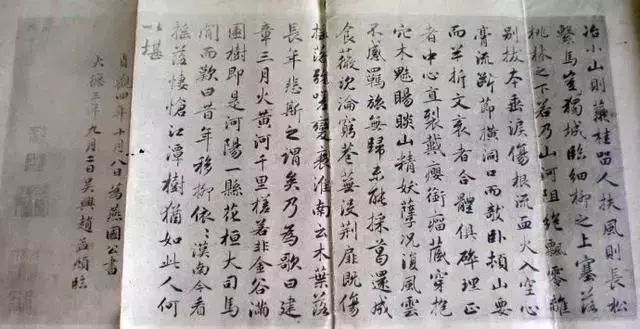 冶小山則藂桂留人扶風則長松
繫馬豈獨城臨細柳之上塞落
桃林之下若乃山河阻絕飄零離
別拔本垂淚傷根流血火入空心
膏流斷節橫洞口而敧卧頓山要
而半折文衺者合體俱碎理正
者中心直裂戴癭銜瘤藏穿抱
穴木魅睗睒山精妖孽況復風雲
不感羈旅無歸未能採葛還成
食薇沉淪窮巷蕪没荆扉既傷
搖落弥嗟變衰淮南云木葉落
長年悲斯之謂矣乃為歌曰建
章三月火黄河千里槎若非金谷滿
園樹即是河陽一縣花桓大司馬
聞而歎曰昔年移柳依〻漢南今看
搖落悽愴江潭樹猶如此人何
以堪
貞觀四年十月八日為燕國公書
大德年九月二日吴興趙孟頫臨